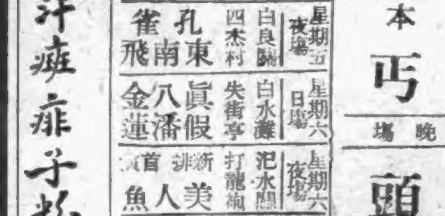 本
丐
晚場
頭
星期五
夜場
白良關
四杰村
孔雀
東南飛
星期六
日場
白水灘
失街亭
眞假
八潘
金蓮
星期六
夜場
汜水關
打龍袍
新排首演
美人魚
汗癍痱子粉